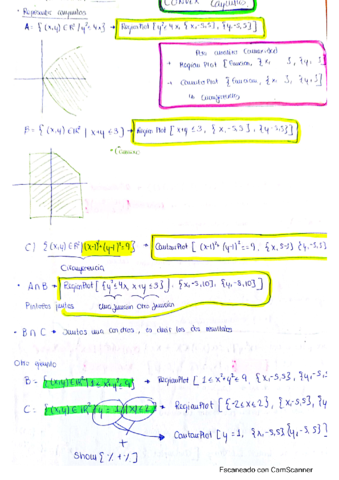 CONVEX Conjuntos
• Representar conjuntos
A = { (x,y) ∈ ℝ² / y² ≤ 4x} → RegionPlot [y² ≤ 4x, {x,-5,5}, {y,-5,5}]
• Region Plot [funcion, {x, }, {y, }]
• ContourPlot [funcion, {x, }, {y, }]
↳ Circunferencias
B = { (x,y) ∈ ℝ² | x+y ≤ 3} → Region Plot [x+y ≤ 3, {x,-5,5}, {y,-5,5}]
C) {(x,y) ∈ ℝ² | (x-1)² + (y-1)² = 9} → ContourPlot [ (x-1)² + (y-1)² == 9, {x,-5,5} {y,-5,5}]
Circunferencia
• A∩B → RegionPlot [{y² ≤ 4x, x+y ≤ 3}, {x,-5,10}, {y,-5,10}]
Pintarlos juntos una función otra función
• B∩C → Juntas una con otra, es decir los dos resultados
Otro ejemplo
B = {(x,y) ∈ ℝ² | 1 ≤ x²+y² ≤ 9} → RegionPlot [1 ≤ x²+y² ≤ 9, {x,-5,5}, {y,-5,
C = {(x,y) ∈ ℝ² | y = 1, |x| ≤ 2} → RegionPlot [{-2 ≤ x ≤ 2}, {x,-5,5}, {y
ContourPlot [y = 1, {x,-5,5} {y,-5,5}]
+
Show [% + %]
Escaneado con CamScanner